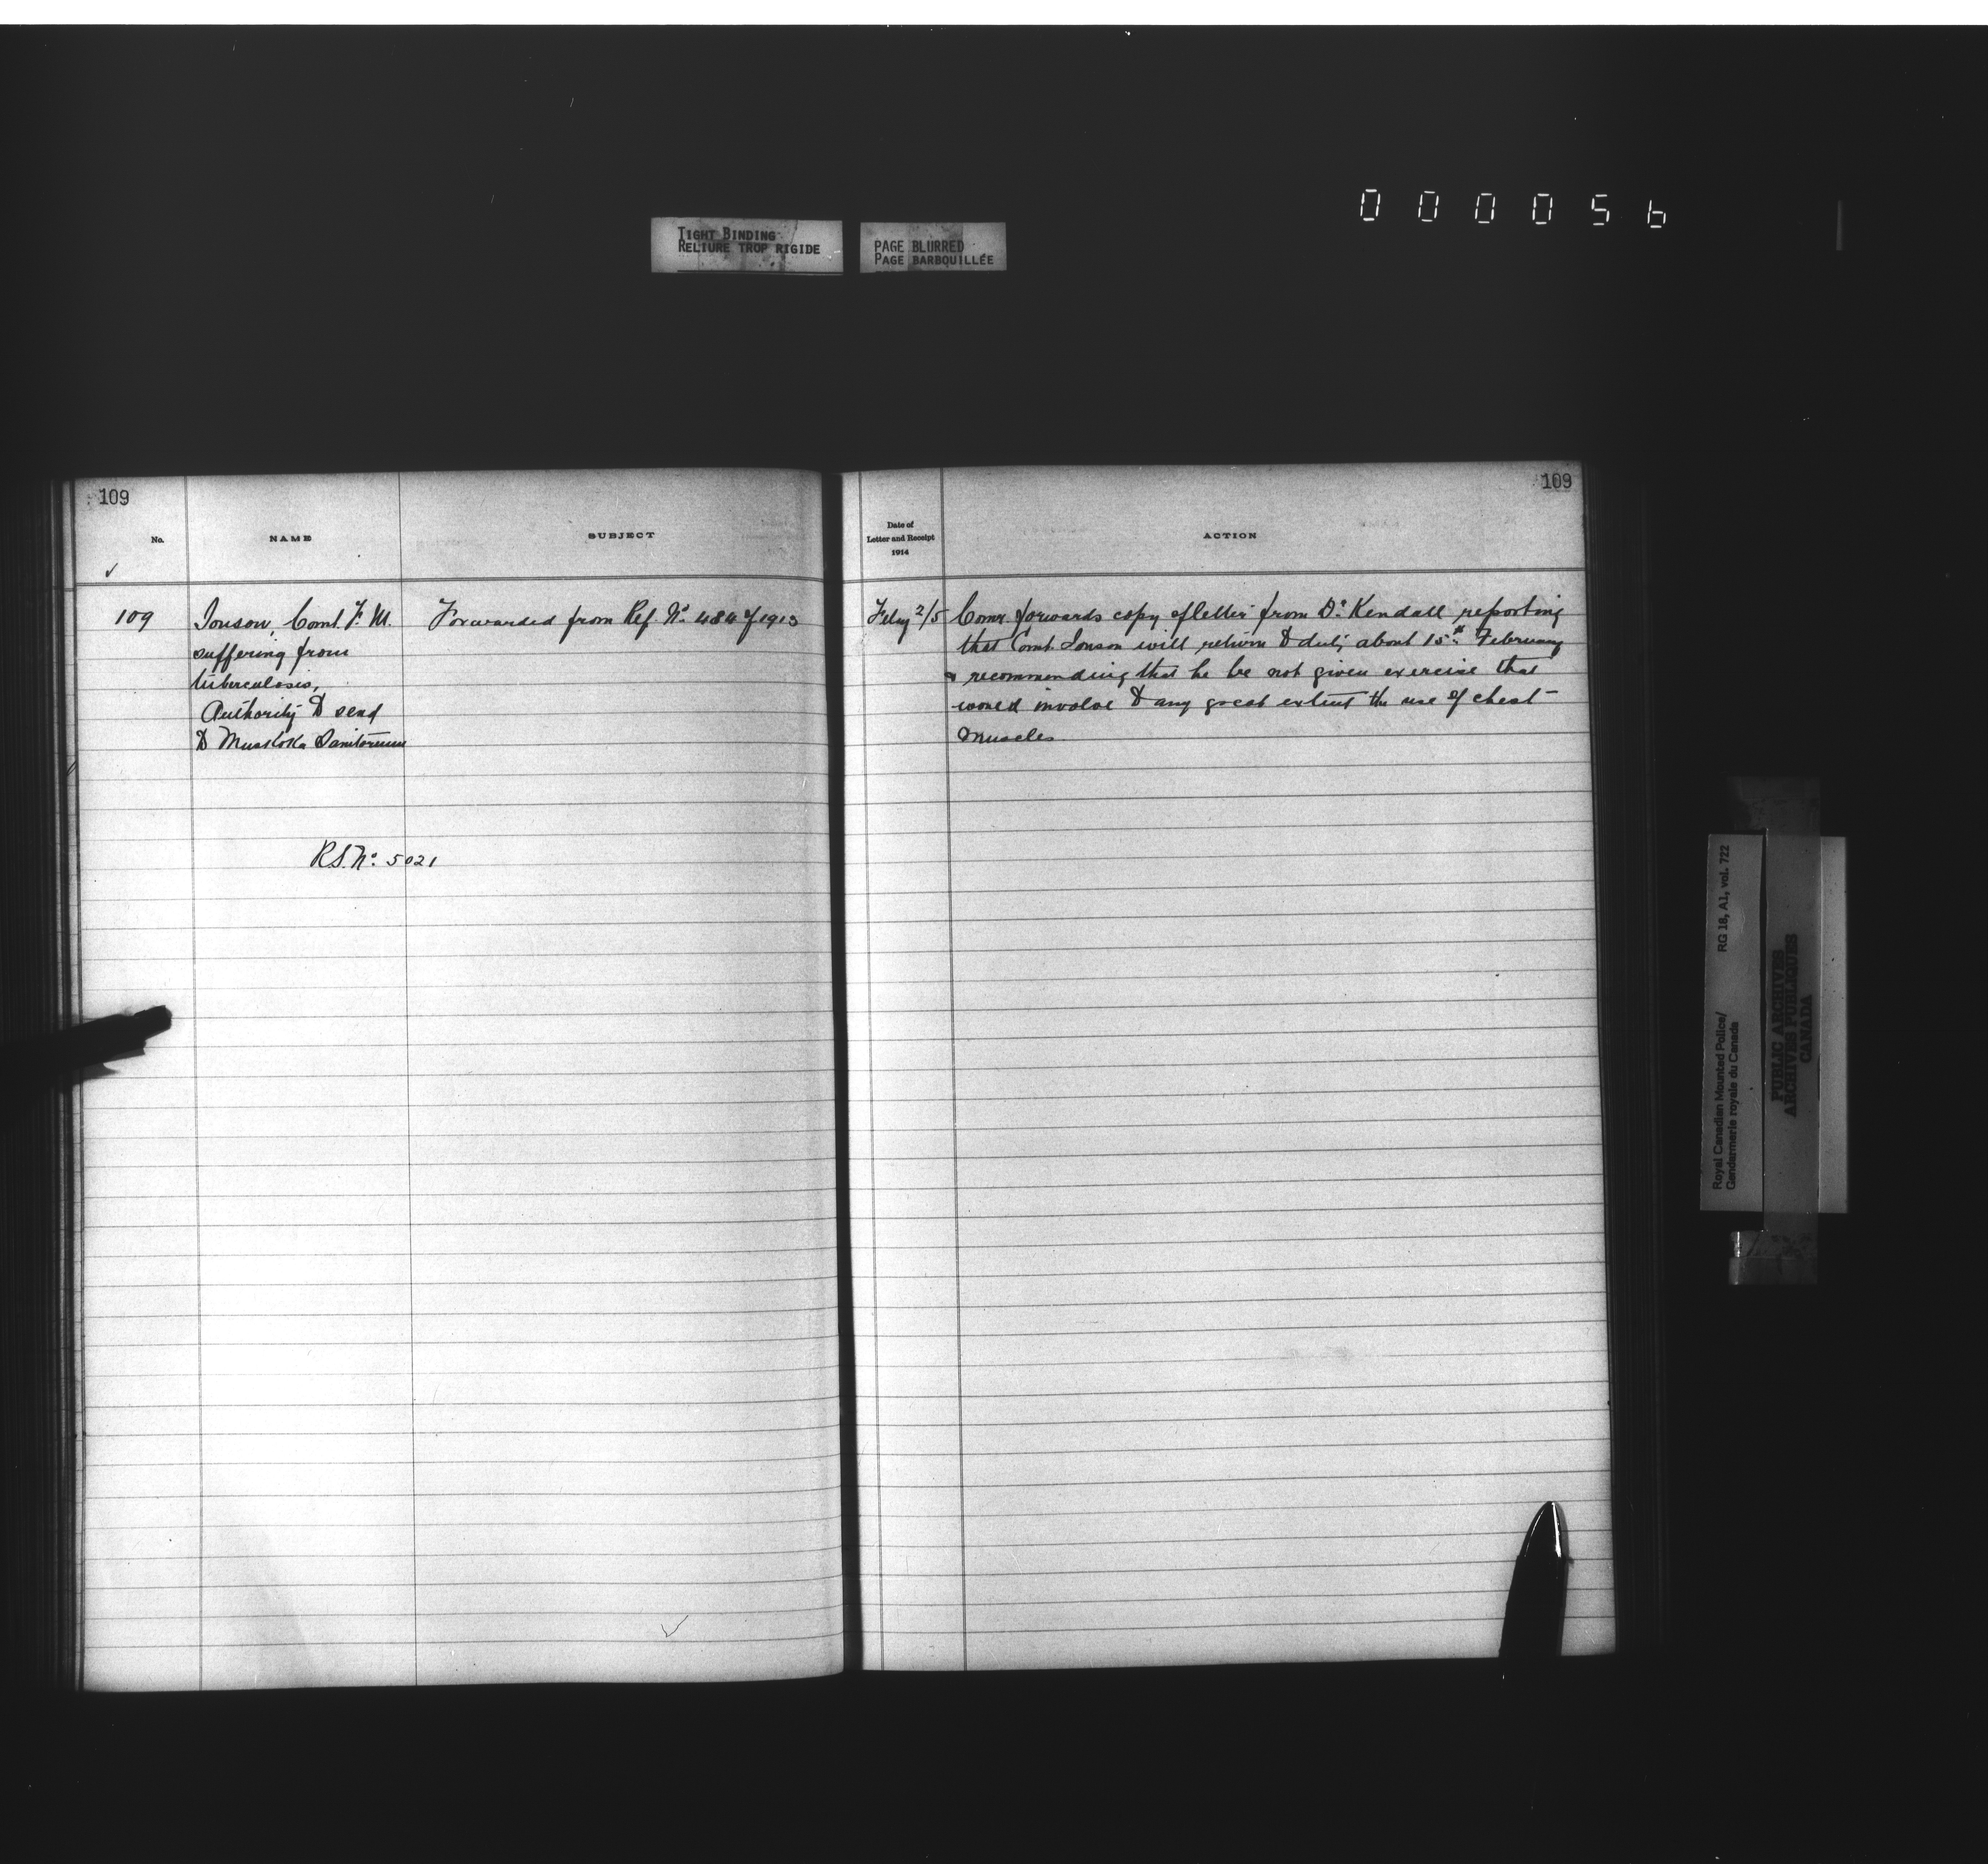 000056
TIGHT BINDING
RELIURE TROP RIGIDE
PAGE BLURRED
PAGE BARBOUILLÉE
109
No.
NAME
SUBJECT
109
Jonson, Const. F. M.
suffering from
tuberculosis,
Authority to send
to Muskoka Sanitorium
Forwarded from Ref. No. 484 of 1913
R.S. No. 5021
109
Date of
Letter and Receipt
1914
ACTION
Feby 2/5
Comr. forwards copy of letter from Dr. Kendall reporting
that Const. Jonson will return to duty about 15th February
& recommending that he be not given exercise that
would involve to any great extent the use of chest
muscles
Royal Canadian Mounted Police/
Gendarmerie royale du Canada
RG 18, A1, vol. 722
PUBLIC ARCHIVES
ARCHIVES PUBLIQUES
CANADA